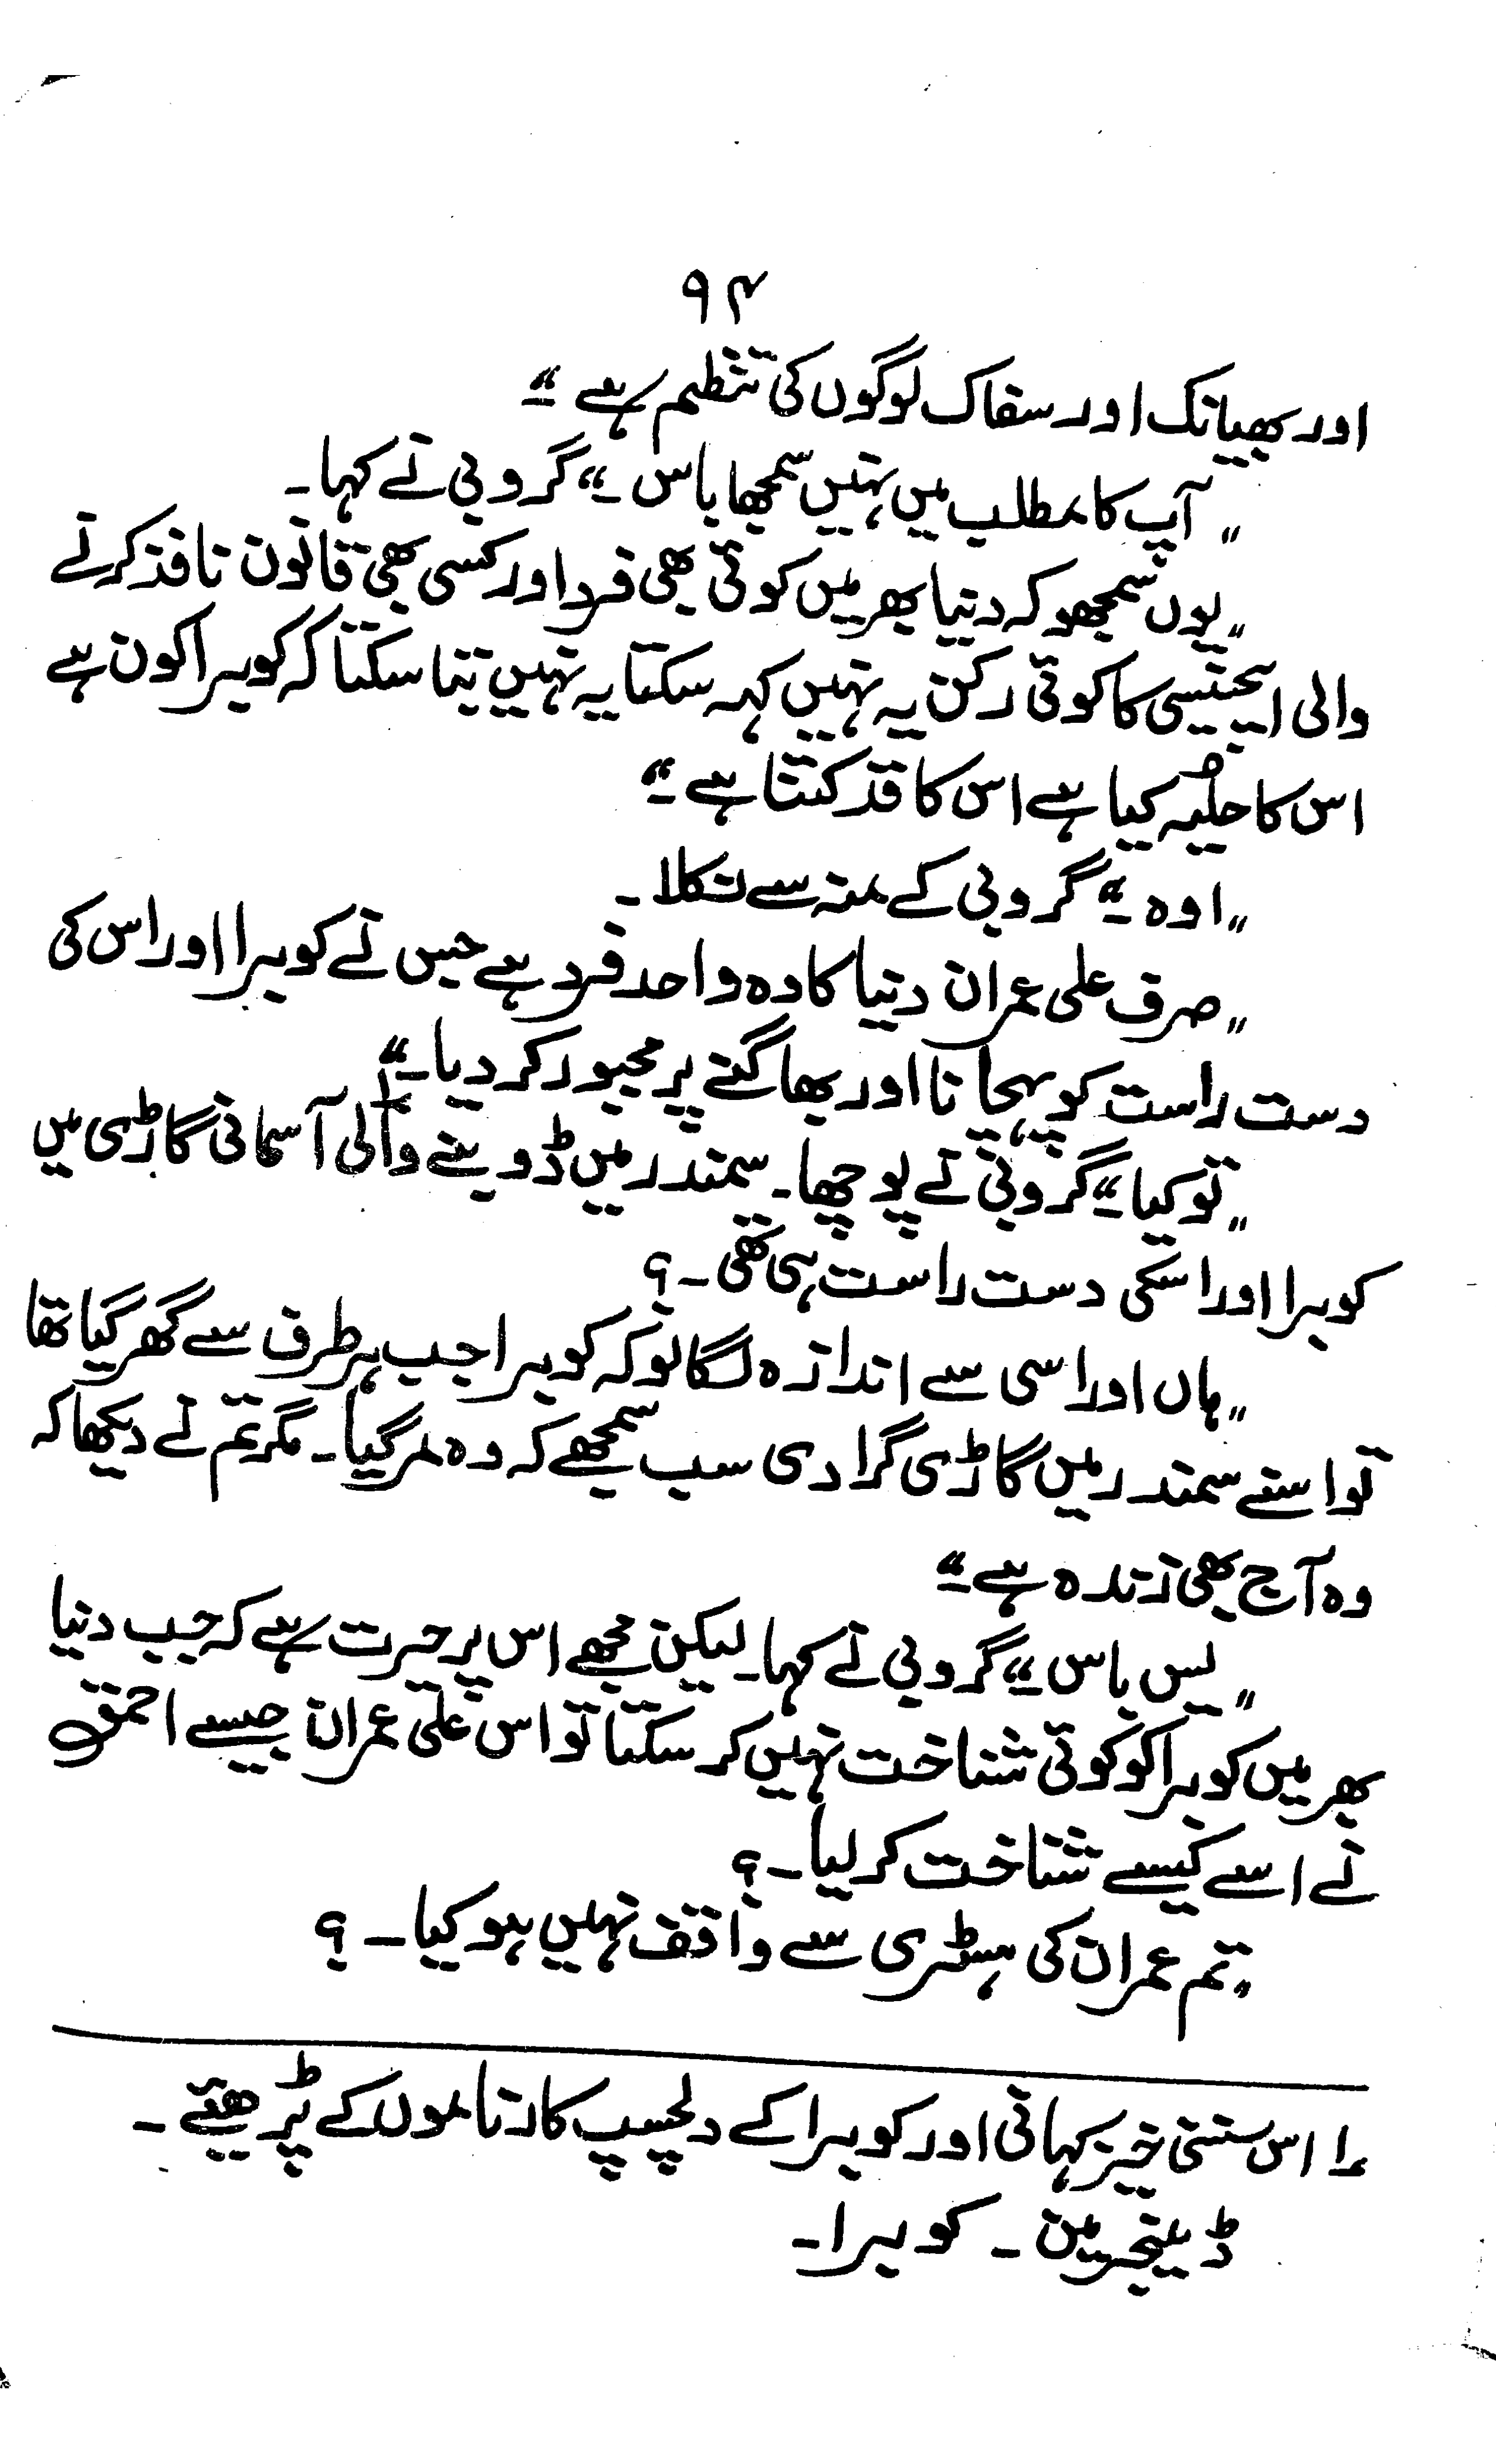 ۹۴
اور بھیانک اور سفاک لوگوں کی تنظیم ہے ۔"
"آپ کا مطلب میں نہیں سمجھا باس ۔" گروبی نے کہا ۔
"یوں سمجھو کہ دنیا بھر میں کوئی بھی فرد اور کسی بھی قانون نافذ کرنے
والی ایجنیسی کا کوئی رکن یہ نہیں کہہ سکتا یہ نہیں بتا سکتا کہ کوبرا کون ہے
اس کا حلیہ کیا ہے اس کا قد کتنا ہے ۔"
"اوہ ۔" گروبی کے منہ سے نکلا ۔
"صرف علی عمران دنیا کا وہ واحد فرد ہے جس نے کوبرا اور اس کی
دست راست کو پہچانا اور بھاگنے پر مجبور کر دیا ۔"
"تو کیا ۔" گروبی نے پوچھا ۔ سمندر میں ڈوبنے والی آسمانی گاڑی میں ۱
کوبرا اور اسکی دست راست ہی تھی ۔ ؟
"ہاں اور اسی سے اندازہ لگا لو کہ کوبرا جب ہر طرف سے گھر گیا تھا
تو اسنے سمندر میں گاڑی گرا دی سب سمجھے کہ وہ مر گیا ۔ مگر تم نے دیکھا کہ
وہ آج بھی زندہ ہے ۔"
"یس باس ۔" گروبی نے کہا ۔ لیکن مجھے اس پر حیرت ہے کہ جب دنیا
بھر میں کوبرا کو کوئی شناخت نہیں کر سکتا تو اس علی عمران جیسے احمق
نے اسے کیسے شناخت کر لیا ۔ ؟
"تم عمران کی ہسٹری سے واقف نہیں ہو کیا ۔ ؟
۱ اس سنسنی خیز کہانی اور کوبرا کے دلچسپ کارناموں کے پڑھیئے ۔
ڈینجر مین ۔ کوبرا ۔